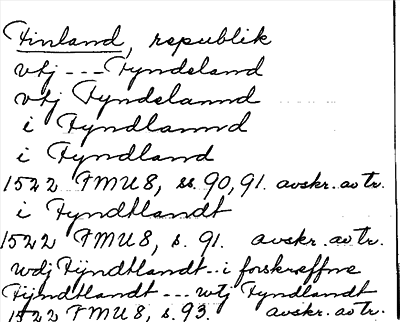 Finland, republik
vtj --- Fyndeland
vtj Fyndelannd
i Fyndlannd
i Fyndland
1522 FMU8, ss. 90, 91. avskr. av tr.
i Fyndtlandt
1522 FMU8, s. 91. avskr. av tr.
wdj Fijndtlandt .. i forskreffne
Fijndtlandt --- wtj Fyndlandt
1522 FMU8, s. 93. avskr. av tr.